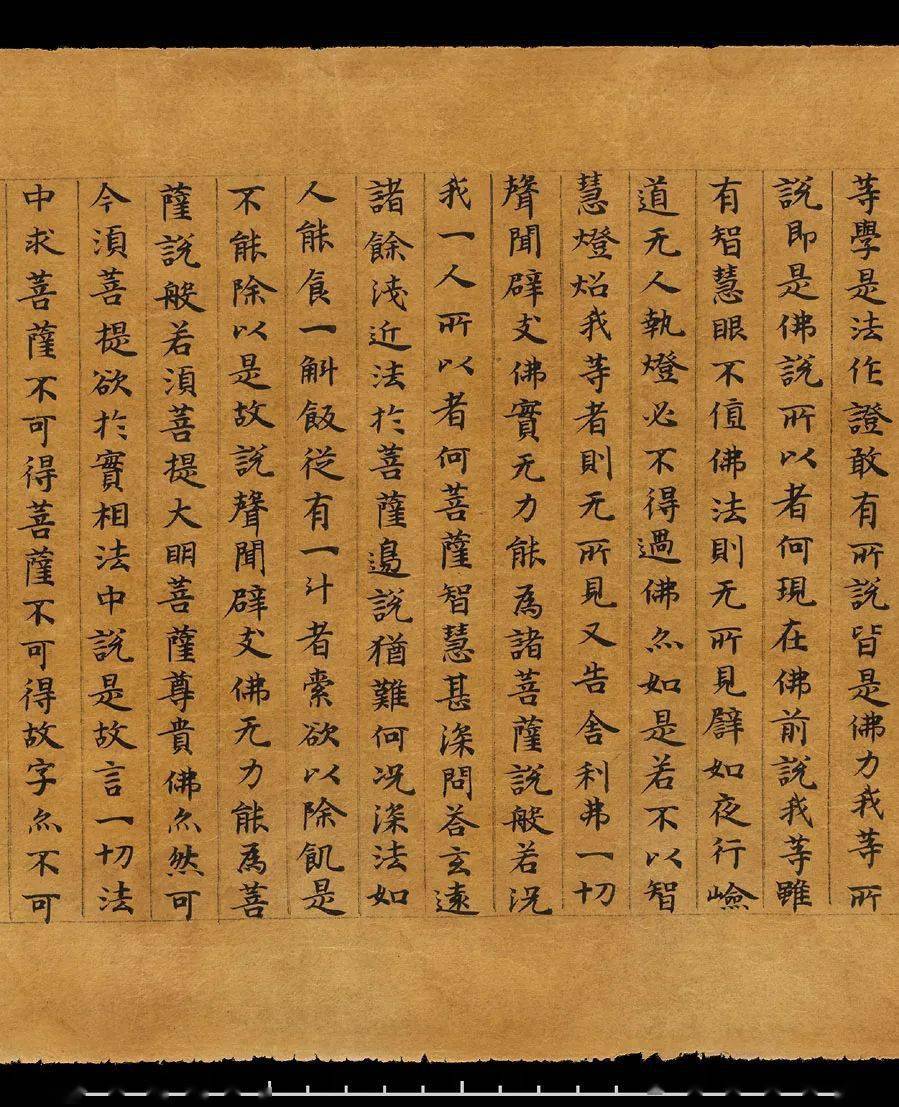 等學是法作證敢有所說皆是佛力我等所
說即是佛說所以者何現在佛前說我等雖
有智慧眼不值佛法則无所見譬如夜行嶮
道无人執燈必不得過佛亦如是若不以智
慧燈炤我等者則无所見又告舍利弗一切
聲聞辟支佛實无力能為諸菩薩說般若況
我一人所以者何菩薩智慧甚深問荅玄遠
諸餘淺近法於菩薩邊說猶難何况深法如
人能食一斛飯從有一斗者索欲以除飢是
不能除以是故說聲聞辟支佛无力能為菩
薩說般若湏菩提大明菩薩尊貴佛亦然可
今湏菩提欲於實相法中說是故言一切法
中求菩薩不可得菩薩不可得故字亦不可